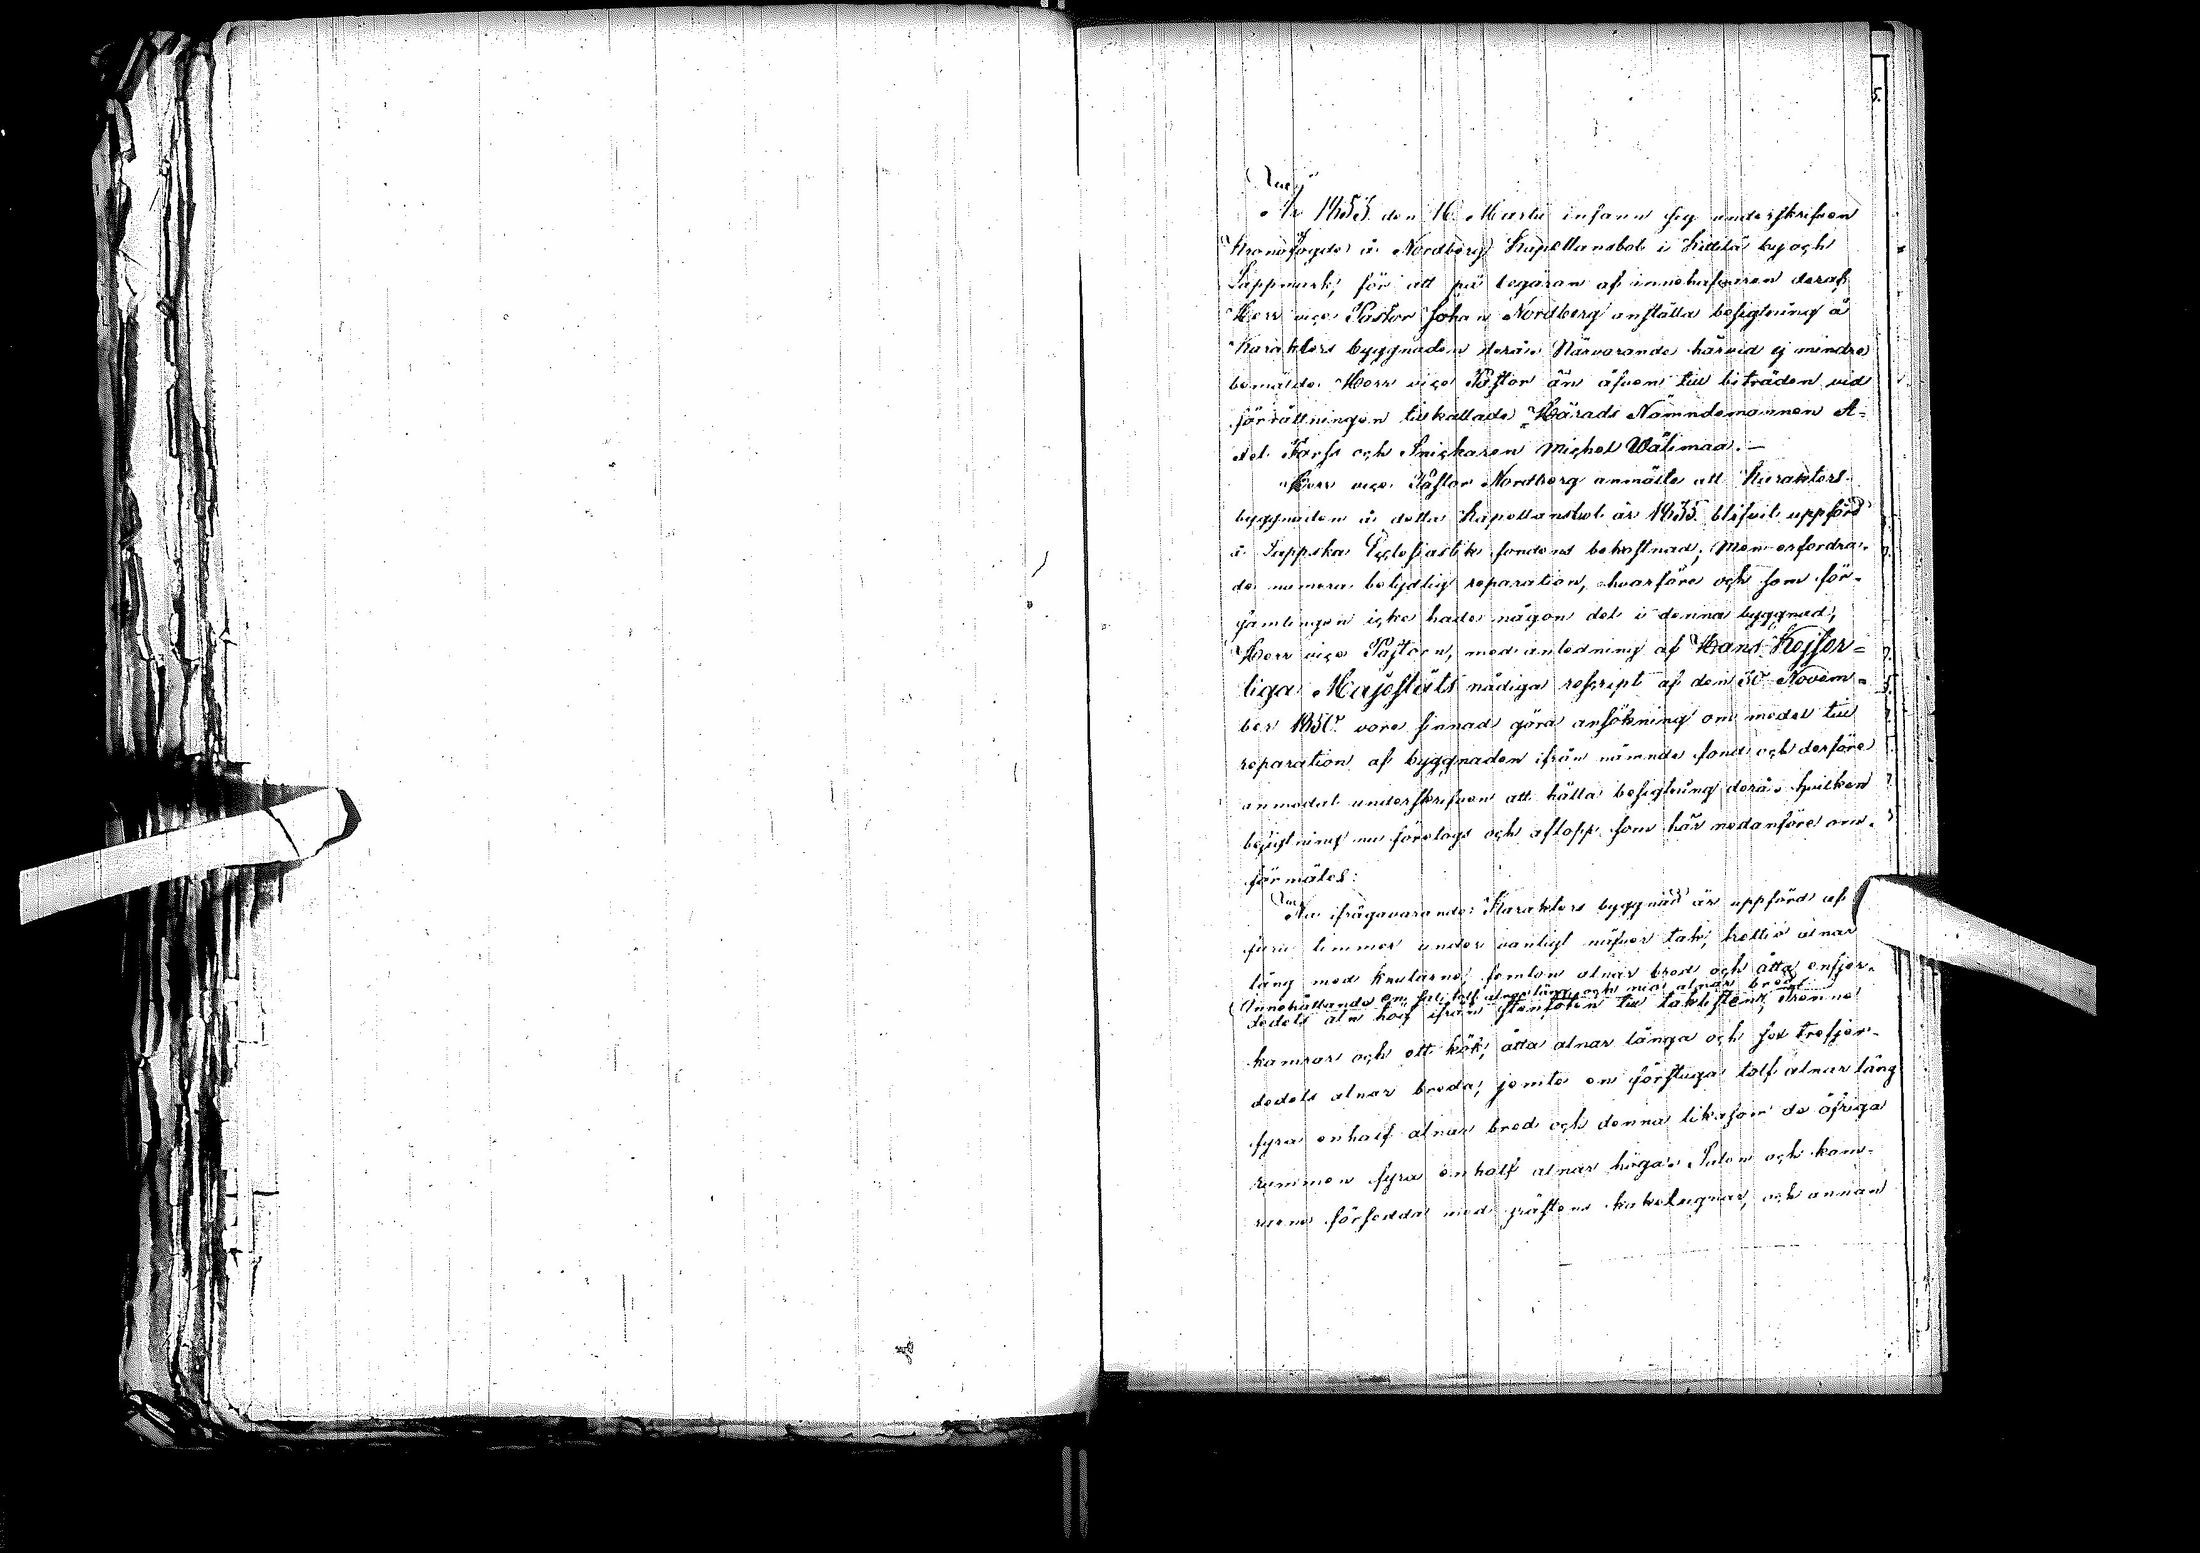 År 1853 den 16 Martii infann sig underskrifven
Kronofogde å Nordberg Kapellansbol i Kittilä by och
Lappmark, för att på begäran af innehafvaren deraf
Herr vice Pastor Johan Nordberg anställa besigtning å
Karakters byggnaden derå. Närvarande härvid ej mindre
bemälde Herr vice Pastor än äfven till biträden vid
förrättningen tillkallade Härads Nämndemannen A-
och Snickaren Michel Wälimaa. —
Herr vice Pastor Nordberg anmälte att Karakters
byggnaden å detta Kapellansbol år 1835 blifvit uppförd
å Lappska Ecclesiastik fondens bekostnad; Men erfordra-
de numera betydlig reparation, hvarföre och som för-
samlingen icke hade någon del i denna byggnad,
Herr vice Pastorn, med anledning af Hans Kejser-
liga Majestäts nådiga rescript af den 30 Novem-
ber 1850 vore sinnad göra ansökning om medel till
reparation af byggnaden ifrån nämnde fond och derföre
anmodat underskrifven att hålla besigtning derå. hvilken
besigtning nu företogs och aflopp som här nedanföre om-
förmäles:
Nu ifrågavarande Karakters byggnad är uppförd af
furu timmer under vanligt näfver tak, trettio alnar
lång med knutarne, femton alnar bred och åtta enfjer-
Innehållande en sal tolf alnar lång och nio alnar bred
dedels aln hög ifrån stenfoten till taklisten, trenne
kamrar och ett kök, åtta alnar långa och sex trefjer-
dedels alnar breda; jemte en förstuga tolf alnar lång
fyra enhalf alnar bred och denna likasom de öfriga
rummen fyra enhalf alnar höga. Salen och kam-
rarne försedda med kakelugnar, och annan